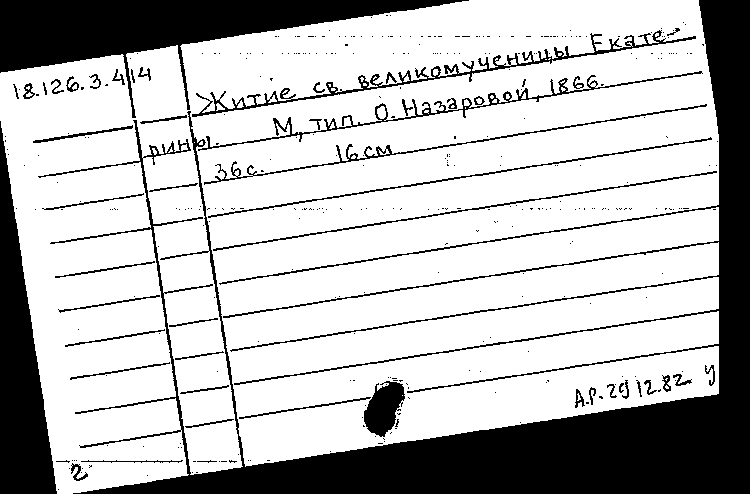 18.126.3.414
Житие св. великомученицы Екате-
рины. М, тип. О. Назаровой, 1866.
36 с. 16 см
А.Р. 29 12.82 У
2